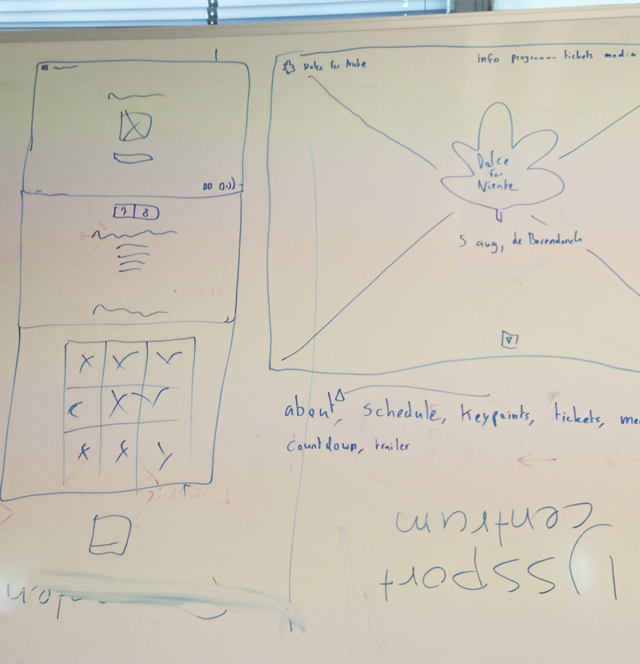 7 8
Dolce far
info tickets media
Dolce
far
Niente
5 aug, de Berendonck
about, schedule, keypoints, tickets, me
countdown, trailer
centrum